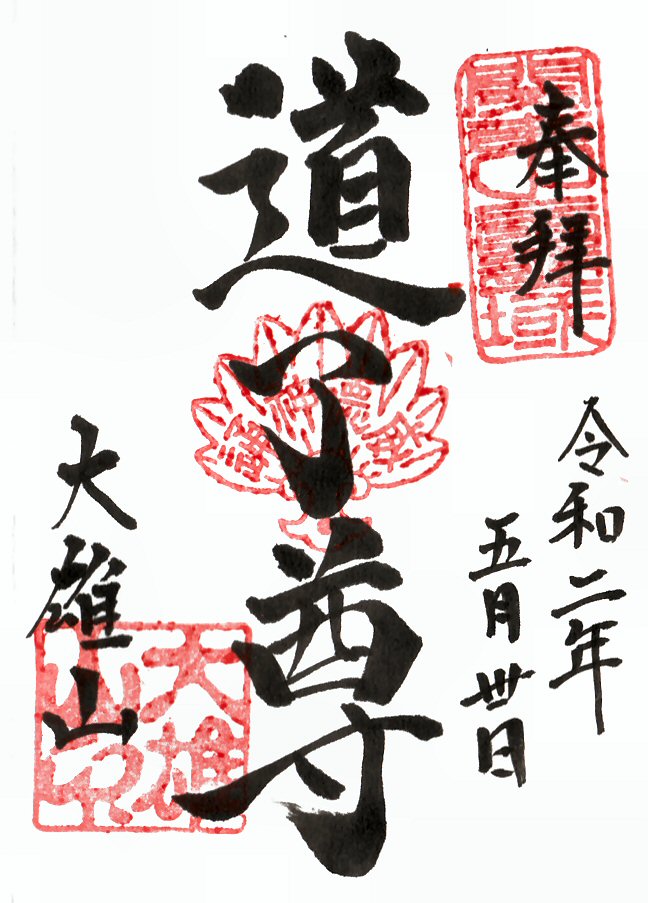 奉拝
令和二年
五月丗日
道了尊
大雄山
大雄山印